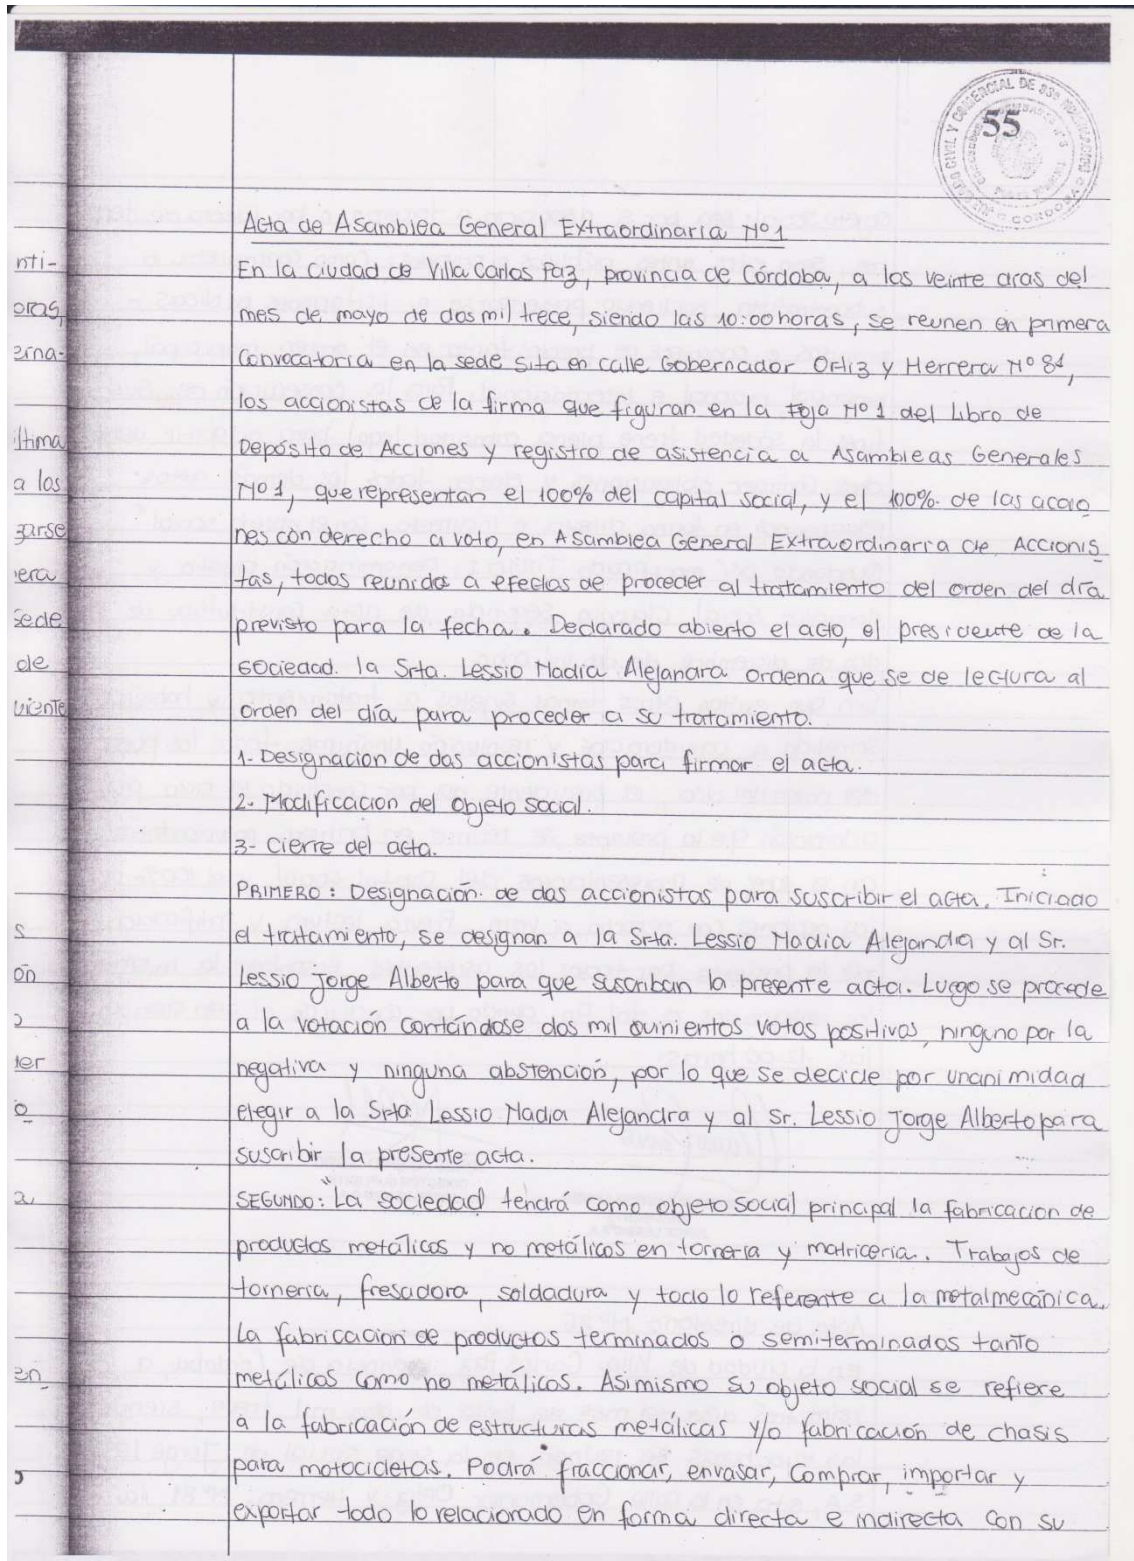 JUZGADO CIVIL Y COMERCIAL DE 33º NOMINACION
CORDOBA
55
Acta de Asamblea General Extraordinaria Nº 1
En la ciudad de Villa Carlos Paz, provincia de Córdoba, a los veinte días del
mes de mayo de dos mil trece, siendo las 10:00 horas, se reunen en primera
Convocatoria en la sede sita en calle Gobernador Ortiz y Herrera Nº 81,
los accionistas de la firma que figuran en la Foja Nº 1 del Libro de
Depósito de Acciones y registro de asistencia a Asambleas Generales
Nº 1, que representan el 100% del capital social, y el 100% de las accio
nes con derecho a voto, en Asamblea General Extraordinaria de Accionis
tas, todos reunidos a efectos de proceder al tratamiento del orden del día
previsto para la fecha. Declarado abierto el acto, el presidente de la
sociedad. la Srta. Lessio Nadia Alejandra ordena que se de lectura al
orden del día para proceder a su tratamiento.
1- Designacion de dos accionistas para firmar el acta.
2- Modificacion del Objeto Social.
3- Cierre del acta.
PRIMERO: Designación de dos accionistas para suscribir el acta. Iniciado
el tratamiento, se designan a la Srta. Lessio Nadia Alejandra y al Sr.
Lessio Jorge Alberto para que suscriban la presente acta. Luego se procede
a la votación contándose dos mil quinientos votos positivos, ninguno por la
negativa y ninguna abstención, por lo que se decide por unanimidad
elegir a la Srta Lessio Nadia Alejandra y al Sr. Lessio Jorge Alberto para
suscribir la presente acta.
SEGUNDO: "La sociedad tendrá como objeto social principal la fabricacion de
productos metálicos y no metálicos en torneria y matriceria. Trabajos de
torneria, fresadora, soldadura y todo lo referente a la metalmecánica.
La fabricacion de productos terminados o semiterminados tanto
metálicos como no metálicos. Asimismo su objeto social se refiere
a la fabricación de estructuras metálicas y/o fabricación de chasis
para motocicletas. Podrá fraccionar, envasar, Comprar, importar y
exportar todo lo relacionado en forma directa e indirecta con su
nti-
oras,
erna-
ltima
a los
garse
era
sede
de
uiente
s
ón
ter
o
en